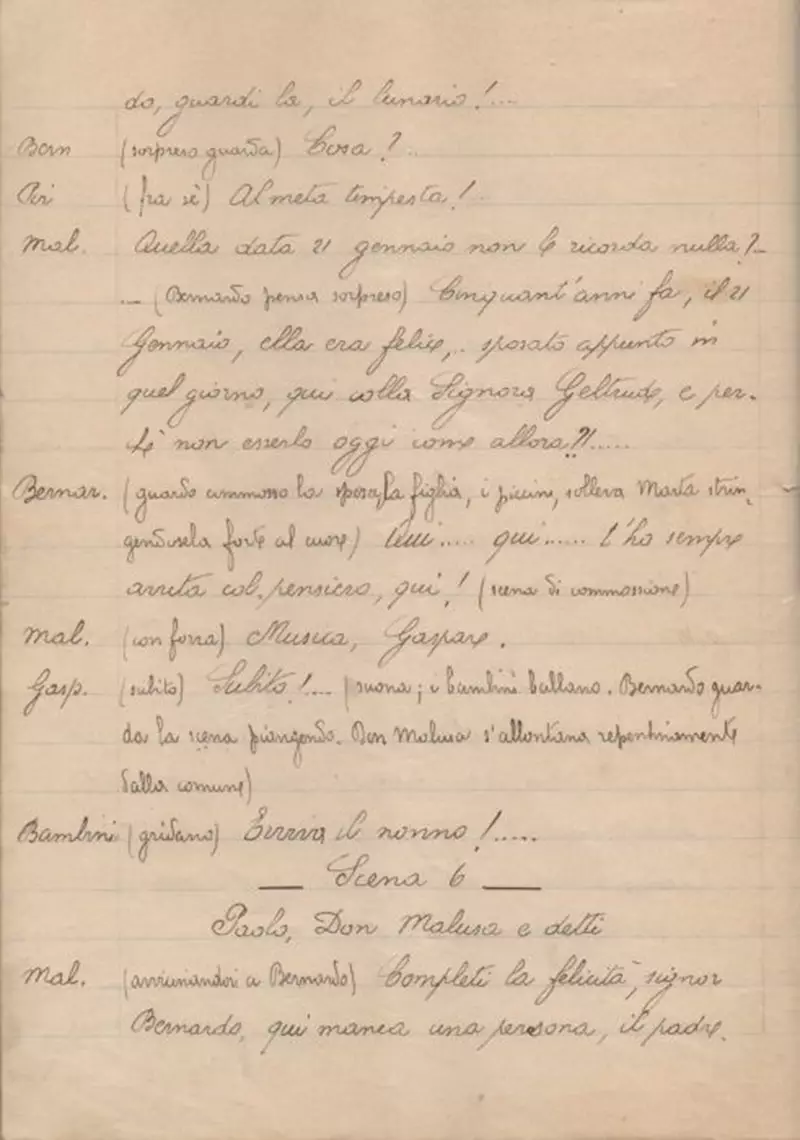 do, guardi la, il lunario!....
Bern (sorpreso guarda) Cosa?..
Pir (fra sè) Al metà tempesta!
Mal. Quella data 21 gennaio non le ricorda nulla?..
... (Bernardo pensa sorpreso) Cinquant'anni fa, il 21
Gennaio, ella era felice,.. sposato appunto in
quel giorno, qui colla Signora Geltrude, e per-
chè non esserlo oggi come allora?!.....
Bernar. (guarda commosso la sposa, la figlia, i piccini, solleva Marta strin,
gendosela forte al cuore) Qui..... qui...... l'ho sempre
avuta col pensiero, qui! (scena di commossione)
Mal. (con forza) Musica, Gaspare.
Gasp. (subito) Subito!.... (suona; i bambini ballano. Bernardo guar-
da la scena piangendo. Don Malusa s'allontana repentinamente
dalla comune)
Bambini (gridano) Evviva il nonno!.....
— Scena 6 —
Paolo, Don Malusa e detti
Mal. (avvicinandosi a Bernardo) Completi la felicità, signor
Bernardo, qui manca una persona, il padre.